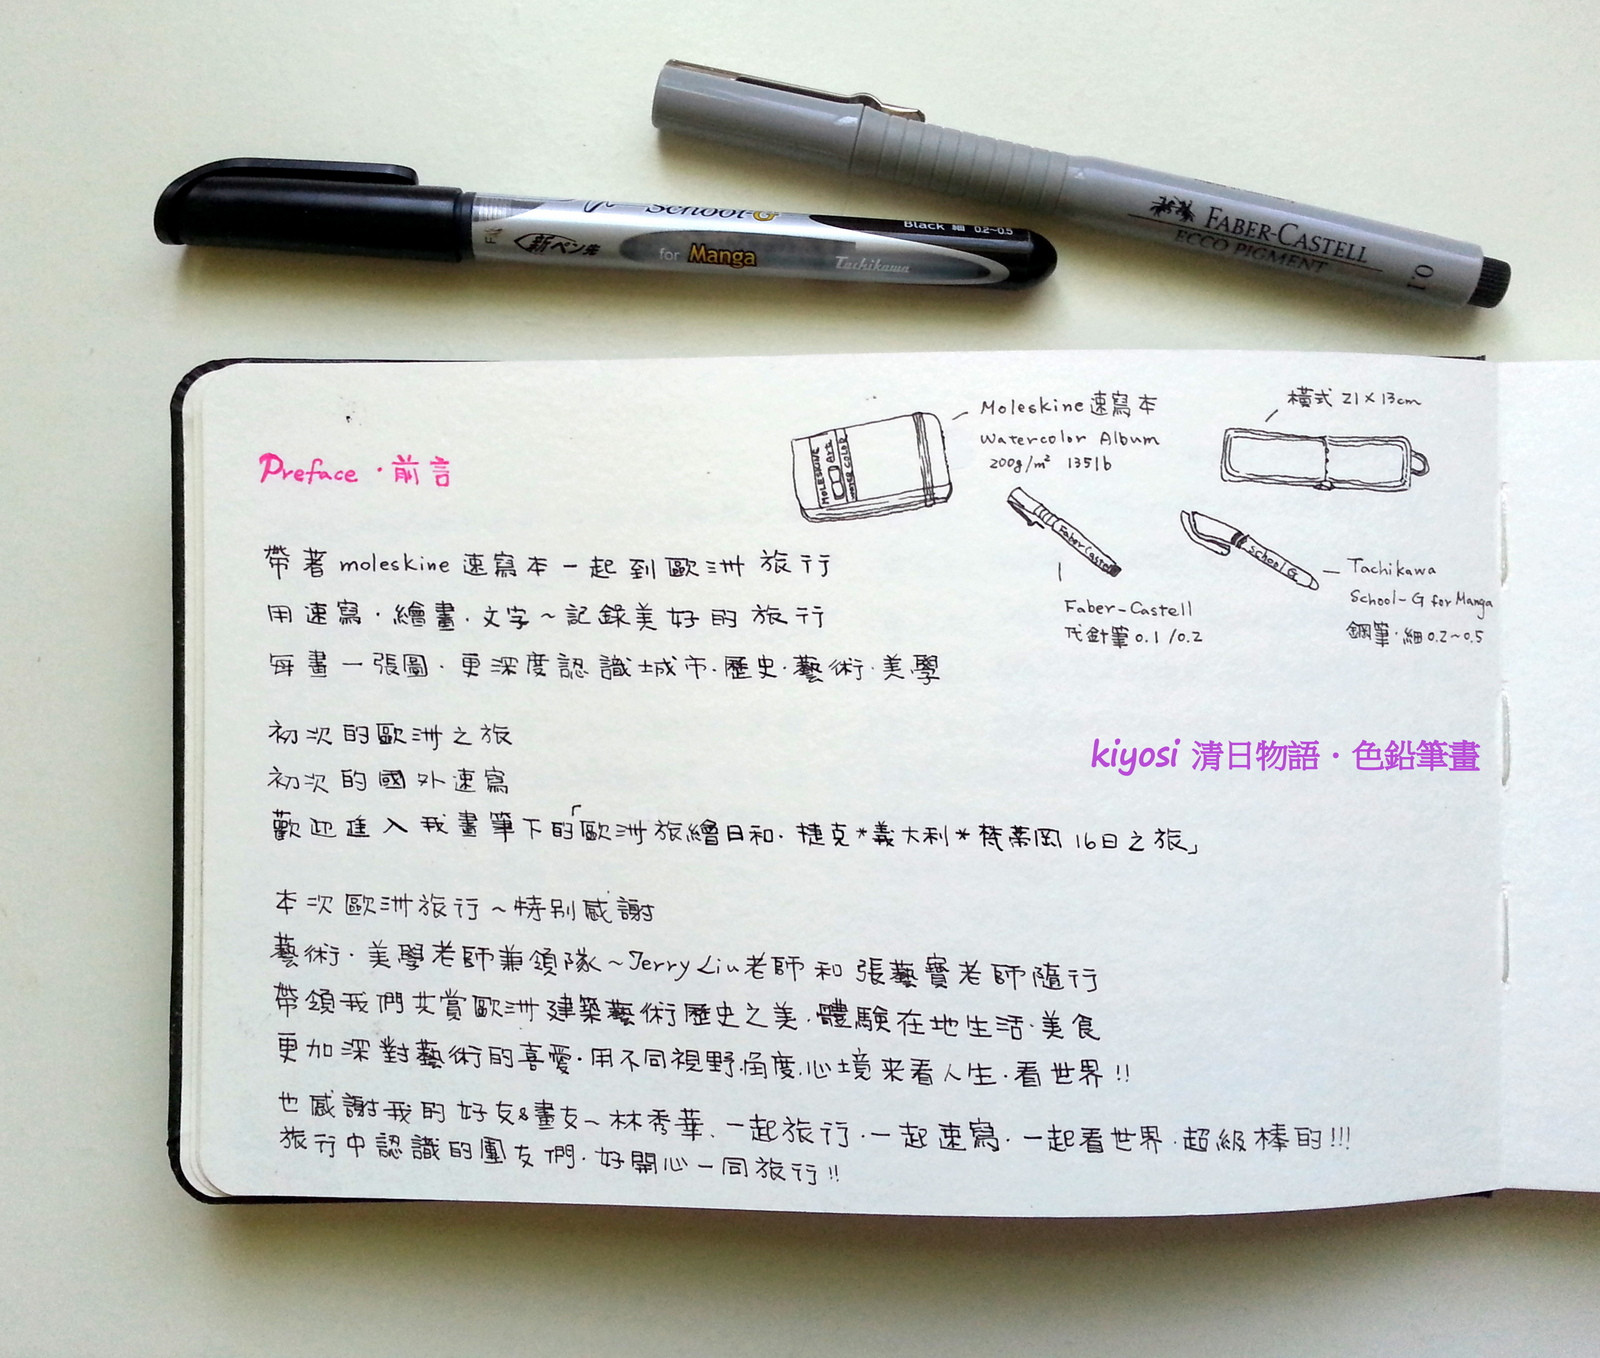 FABER-CASTELL
ECCO PIGMENT
0.1
School-G
Black 細 0.2~0.5
新ペン先
for Manga
Tachikawa
Moleskine 速寫本
Watercolor Album
200g/m² 135lb
橫式 21×13cm
MOLESKINE
Art
WATER COLOR
Faber Castell
School G
Faber-Castell
代針筆 0.1/0.2
Tachikawa
School-G for Manga
鋼筆·細 0.2~0.5
Preface·前言
帶著 moleskine 速寫本一起到歐洲旅行
用速寫·繪畫·文字~記錄美好的旅行
每畫一張圖·更深度認識城市·歷史·藝術·美學
初次的歐洲之旅
初次的國外速寫
歡迎進入我畫筆下的「歐洲旅繪日和·捷克*義大利*梵蒂岡16日之旅」
本次歐洲旅行~特別感謝
藝術·美學老師兼領隊~Jerry Liu老師和張藝寶老師隨行
帶領我們共賞歐洲建築藝術歷史之美·體驗在地生活·美食
更加深對藝術的喜愛·用不同視野.角度.心境來看人生·看世界!!
也感謝我的好友&畫友~林秀華、一起旅行·一起速寫·一起看世界·超級棒的!!!
旅行中認識的團友們·好開心一同旅行!!
kiyosi 清日物語·色鉛筆畫